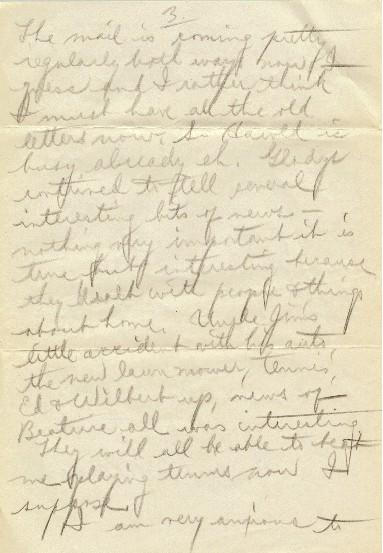 3.
The mail is coming pretty
regularly both ways now I
guess and I rather think
I must have all the old
letters now. So Harold is
busy already eh. Gladys
contrived to tell several
interesting bits of news –
nothing very important it is
true but interesting because
they dealt with people & things
about home. Uncle Jim's
little accident with his auto,
the new lawn mower, tennis,
Ed & Wilbert up, news of
Beatrice all was interesting.
They will all be able to beat
me playing tennis now I
suppose.
I am very anxious to